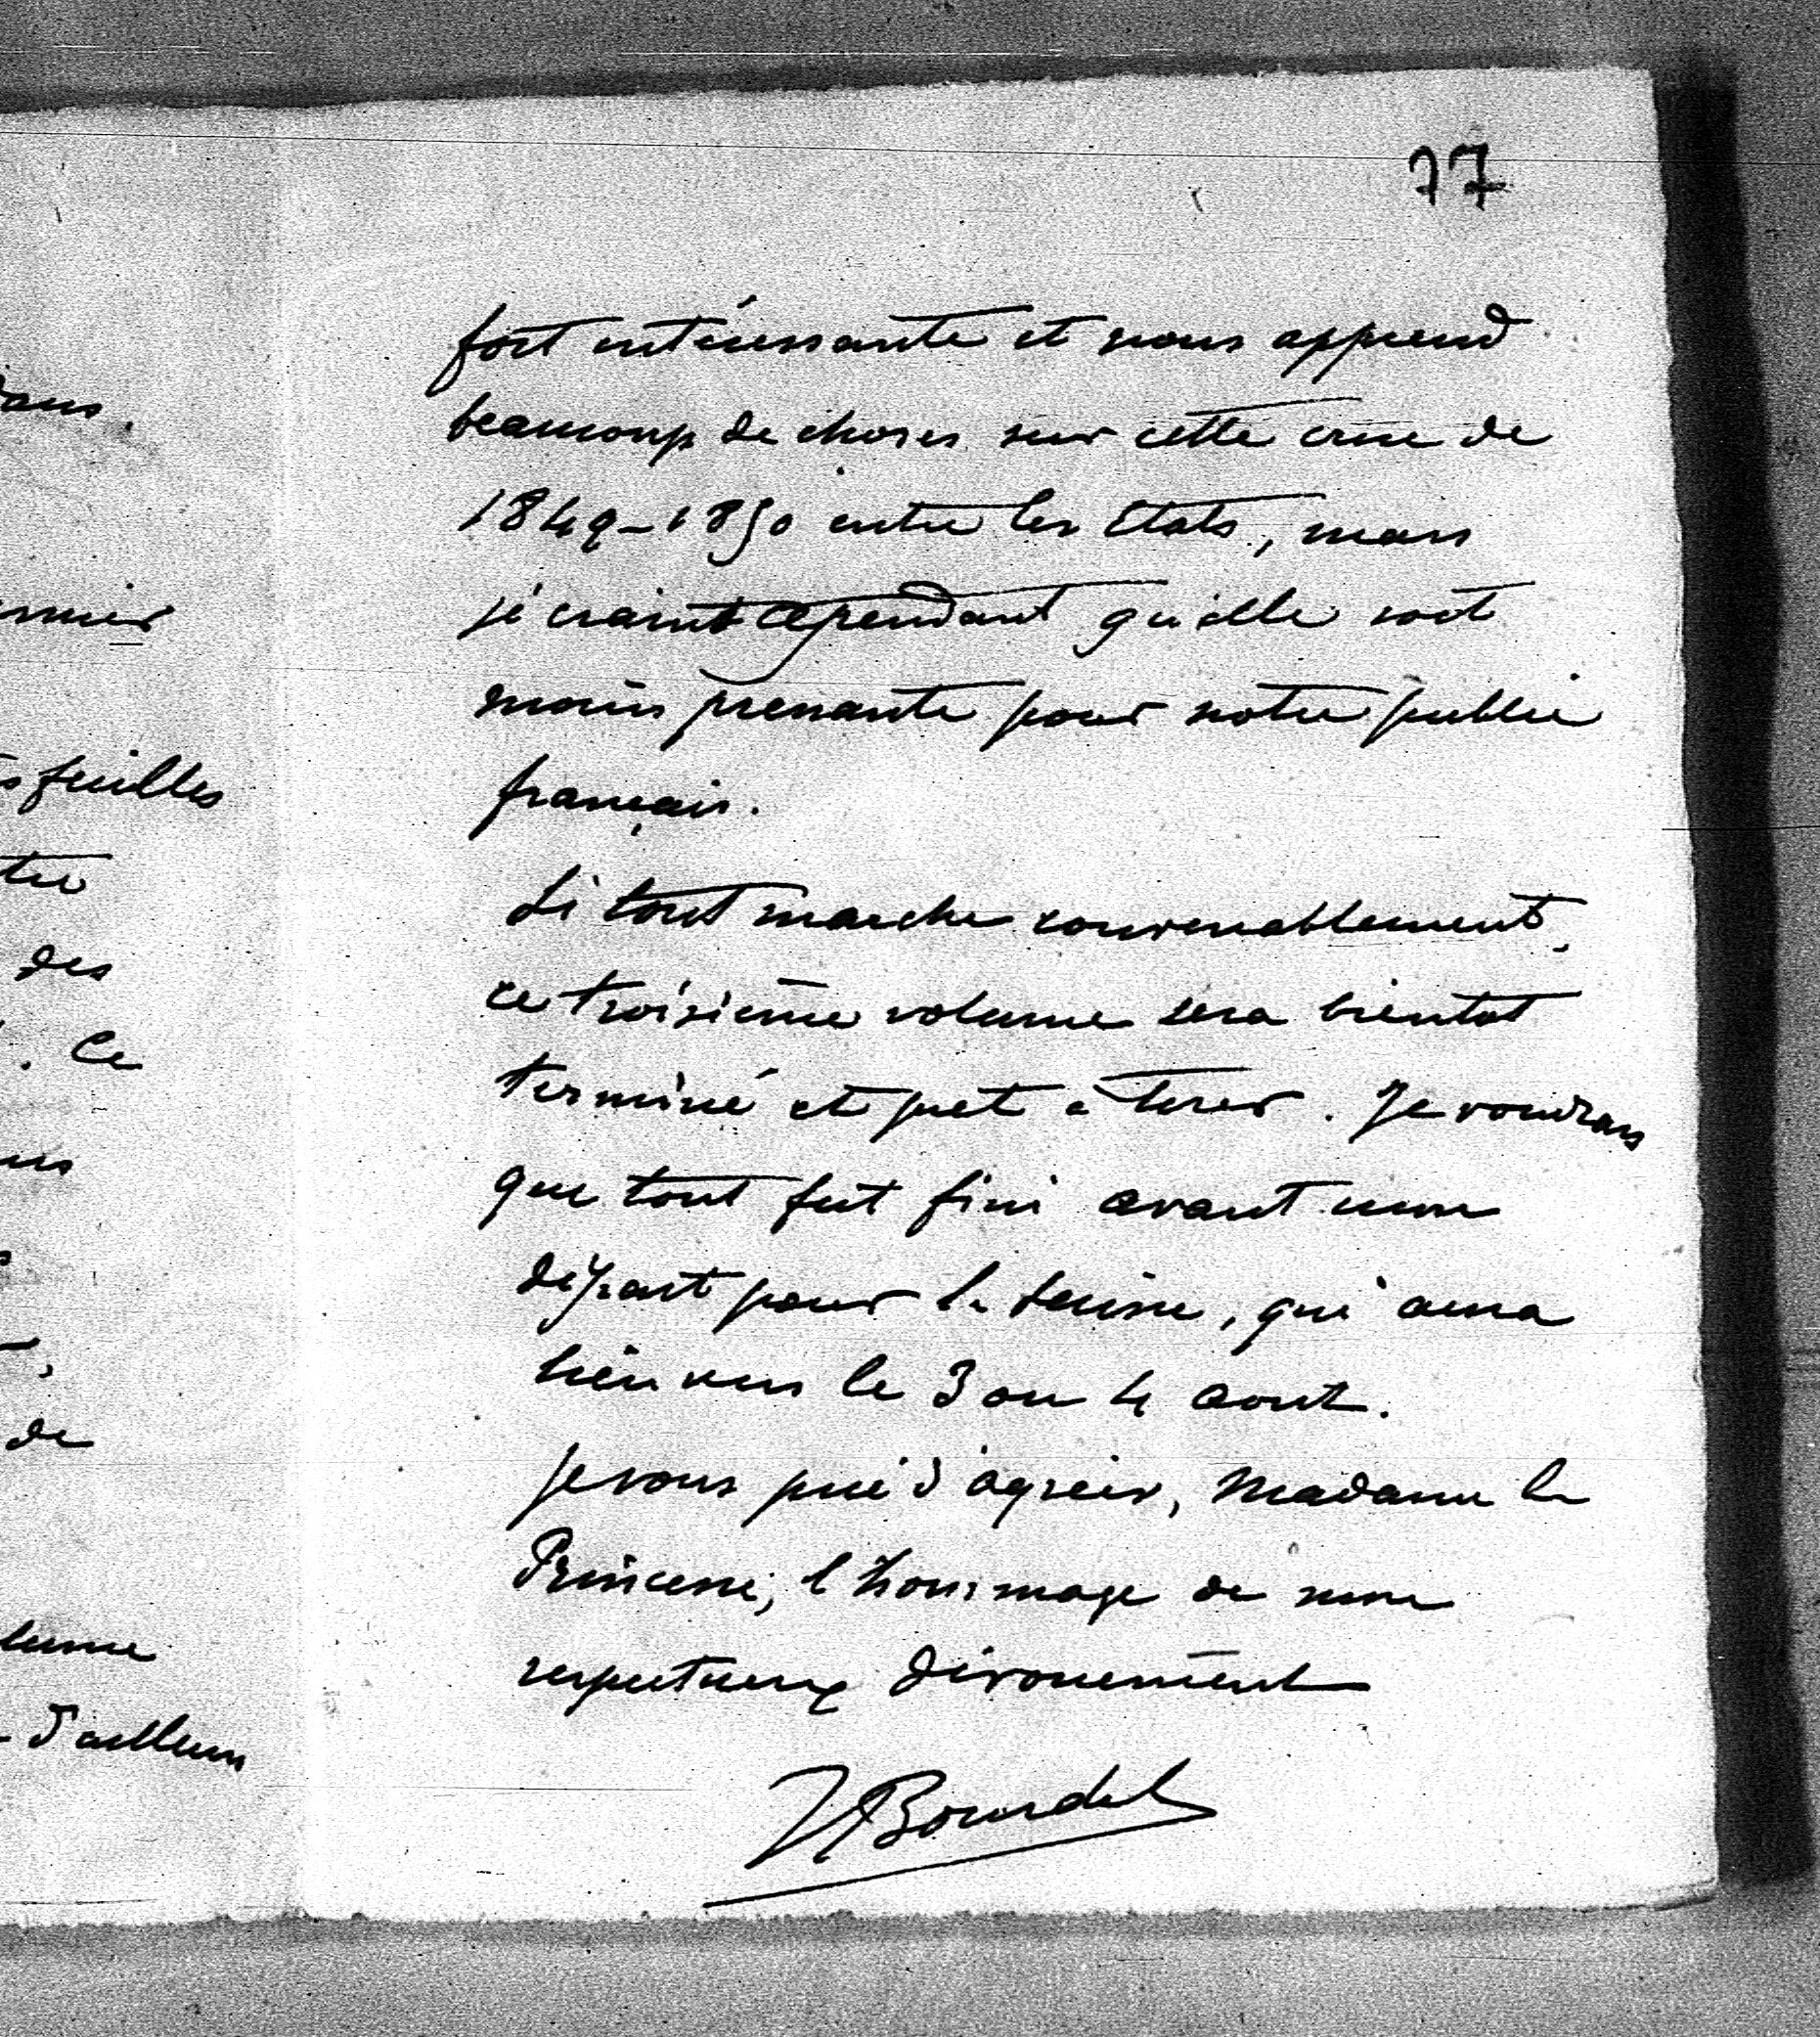 dans.
feuilles
des
. Ce
de
d'ailleurs
77
fort intéressante et nous apprend
beaucoup de choses sur cette crise de
1849-1850 entre les Etats, mais
je crains cependant qu'elle soit
moins prenante pour notre public
français.
Si tout marche convenablement,
ce troisième volume sera bientot
terminé et pret à tirer. Je voudrais
que tout fut fini avant mon
départ pour la Suisse, qui aura
lieu vers le 3 ou 4 aout.
Je vous prie d'agréer, Madame la
Princesse, l'hommage de mon
respectueux dévouement
Bourdel